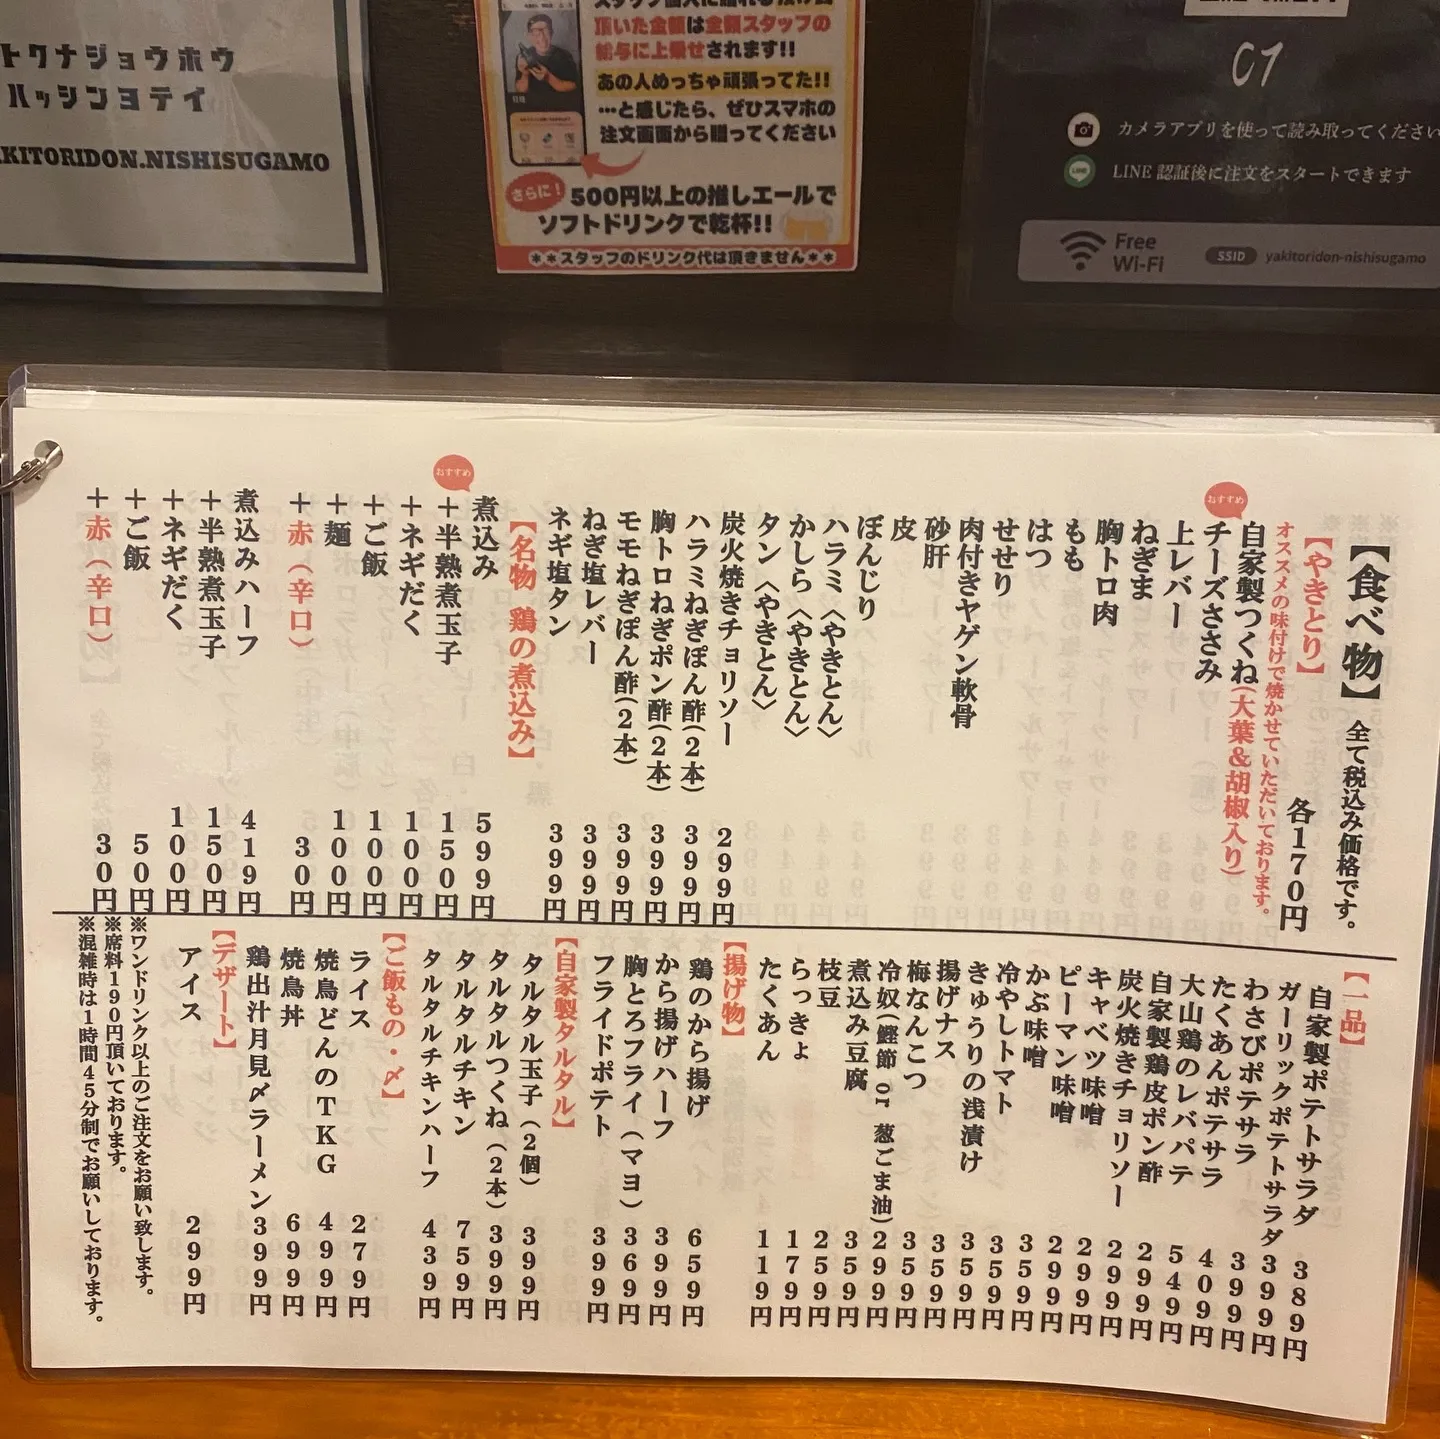 トクナジョウホウ
ハッシンヨテイ
AKITORIDON.NISHISUGAMO
頂いた金額は全額スタッフの
給与に上乗せされます!!
あの人めっちゃ頑張ってた!!
…と感じたら、ぜひスマホの
注文画面から贈ってください
さらに!
500円以上の推しエールで
ソフトドリンクで乾杯!!
**スタッフのドリンク代は頂きません**
C1
カメラアプリを使って読み取ってください
LINE
LINE 認証後に注文をスタートできます
Free
Wi-Fi
SSID yakitoridon-nishisugamo
【食べ物】 全て税込み価格です。
【やきとり】 各170円
オススメの味付けで焼かせていただいております。
自家製つくね(大葉&胡椒入り)
おすすめ
チーズささみ
上レバー
ねぎま
胸トロ肉
もも
はつ
せせり
肉付きヤゲン軟骨
砂肝
皮
ぼんじり
ハラミ〈やきとん〉
かしら〈やきとん〉
タン〈やきとん〉
炭火焼きチョリソー 299円
ハラミねぎぽん酢(2本) 399円
胸トロねぎポン酢(2本) 399円
モモねぎぽん酢(2本) 399円
ねぎ塩レバー 399円
ネギ塩タン 399円
【名物 鶏の煮込み】
煮込み 599円
おすすめ
+半熟煮玉子 150円
+ネギだく 100円
+ご飯 100円
+麺 100円
+赤(辛口) 30円
煮込みハーフ 419円
+半熟煮玉子 150円
+ネギだく 100円
+ご飯 50円
+赤(辛口) 30円
【一品】
自家製ポテトサラダ 389円
ガーリックポテトサラダ 399円
わさびポテサラ 399円
たくあんポテサラ 409円
大山鶏のレバパテ 549円
自家製鶏皮ポン酢 299円
炭火焼きチョリソー 299円
キャベツ味噌 299円
ピーマン味噌 299円
かぶ味噌 359円
冷やしトマト 359円
きゅうりの浅漬け 359円
揚げナス 359円
梅なんこつ 359円
冷奴(鰹節 or 葱ごま油) 299円
煮込み豆腐 359円
枝豆 259円
らっきょ 179円
たくあん 119円
【揚げ物】
鶏のから揚げ 659円
から揚げハーフ 399円
胸とろフライ(マヨ) 369円
フライドポテト 399円
【自家製タルタル】
タルタル玉子(2個) 399円
タルタルつくね(2本) 399円
タルタルチキン 759円
タルタルチキンハーフ 439円
【ご飯もの・〆】
ライス 279円
焼鳥どんのTKG 499円
焼鳥丼 699円
鶏出汁月見〆ラーメン 399円
【デザート】
アイス 299円
※ワンドリンク以上のご注文をお願い致します。
※席料190円頂いております。
※混雑時は1時間45分制でお願いしております。